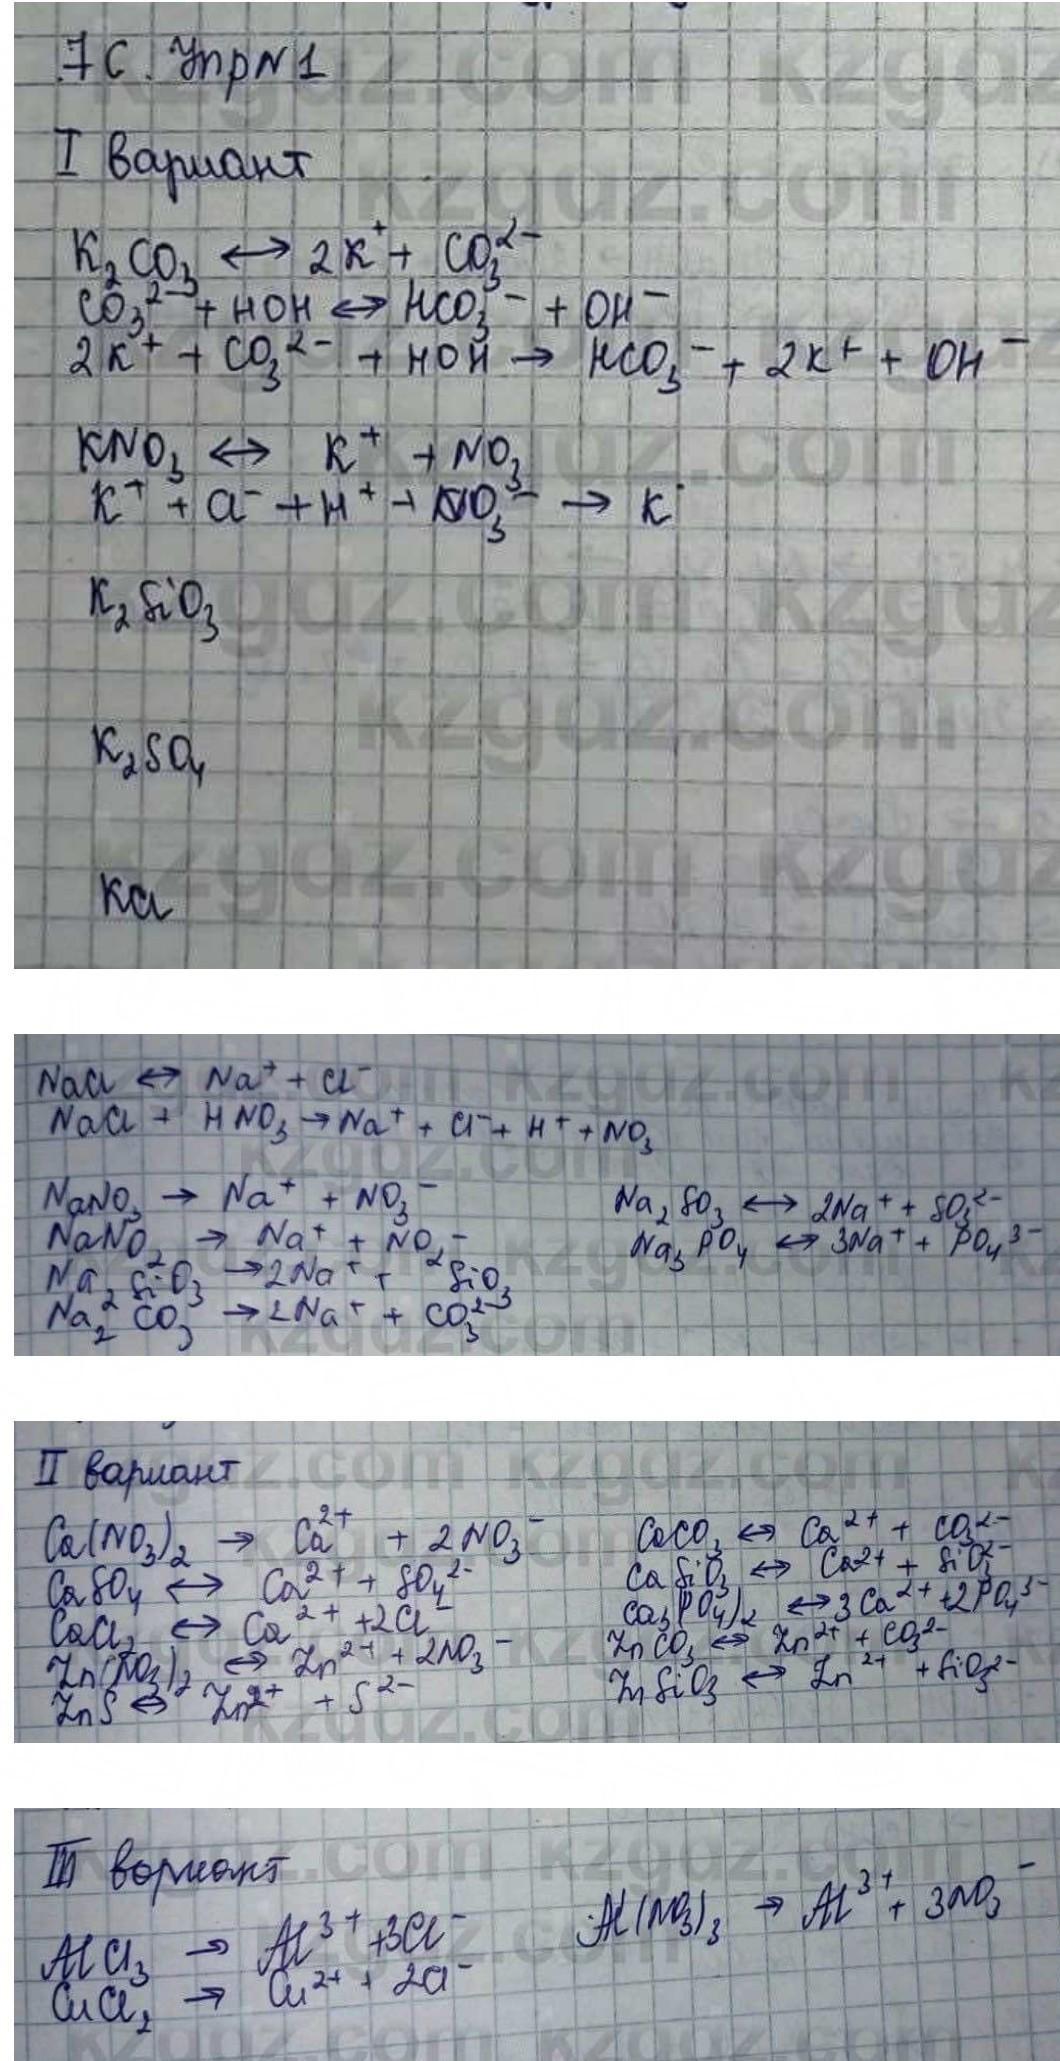 7С. Упр N1
I вариант
K₂CO₃ ↔ 2K⁺ + CO₃²⁻
CO₃²⁻ + HOH ↔ HCO₃⁻ + OH⁻
2K⁺ + CO₃²⁻ + HOH → HCO₃⁻ + 2K⁺ + OH⁻
KNO₃ ↔ K⁺ + NO₃
K⁺ + Cl⁻ + H⁺ + NO₃⁻ → K
K₂SiO₃
K₂SO₄
KCl
NaCl ↔ Na⁺ + Cl⁻
NaCl + HNO₃ → Na⁺ + Cl⁻ + H⁺ + NO₃
NaNO₃ → Na⁺ + NO₃⁻
NaNO₂ → Na⁺ + NO₂⁻
Na₂SiO₃ → 2Na⁺ + SiO₃²⁻
Na₂CO₃ → 2Na⁺ + CO₃²⁻
Na₂SO₃ ↔ 2Na⁺ + SO₃²⁻
Na₃PO₄ ↔ 3Na⁺ + PO₄³⁻
II вариант
Ca(NO₃)₂ → Ca²⁺ + 2NO₃⁻
CaSO₄ ↔ Ca²⁺ + SO₄²⁻
CaCl₂ ↔ Ca²⁺ + 2Cl⁻
Zn(NO₃)₂ ↔ Zn²⁺ + 2NO₃⁻
ZnS ↔ Zn²⁺ + S²⁻
CaCO₃ ↔ Ca²⁺ + CO₃²⁻
CaSiO₃ ↔ Ca²⁺ + SiO₃²⁻
Ca₃(PO₄)₂ ↔ 3Ca²⁺ + 2PO₄³⁻
ZnCO₃ ↔ Zn²⁺ + CO₃²⁻
ZnSiO₃ ↔ Zn²⁺ + SiO₃²⁻
III вариант
AlCl₃ → Al³⁺ + 3Cl⁻
CuCl₂ → Cu²⁺ + 2Cl⁻
Al(NO₃)₃ → Al³⁺ + 3NO₃⁻
kzgdz.com